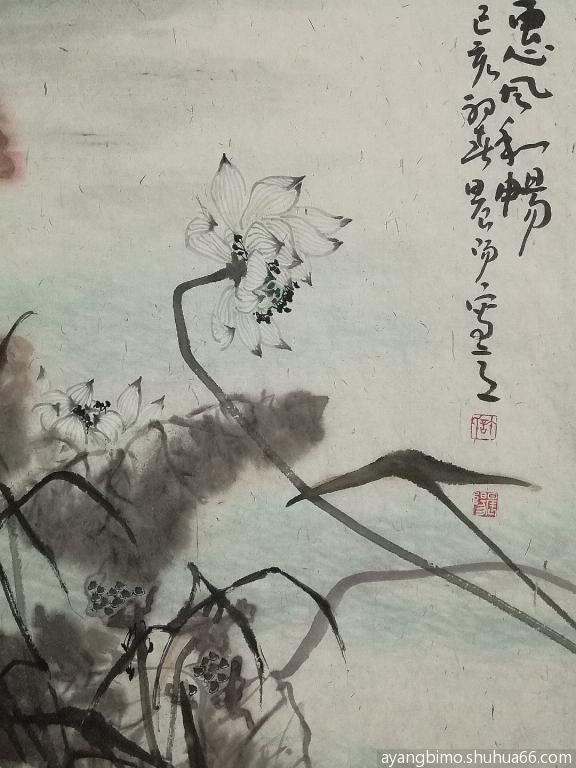 惠风和暢
己亥初春晨阳写意
ayangbimo.shuhua66.com